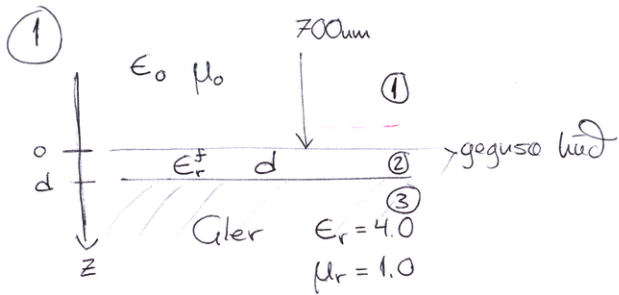 ①
700nm
ε₀ μ₀
①
0
εᵣᶠ d ② gegnsæ húð
d
③
Gler εᵣ = 4.0
μᵣ = 1.0
z